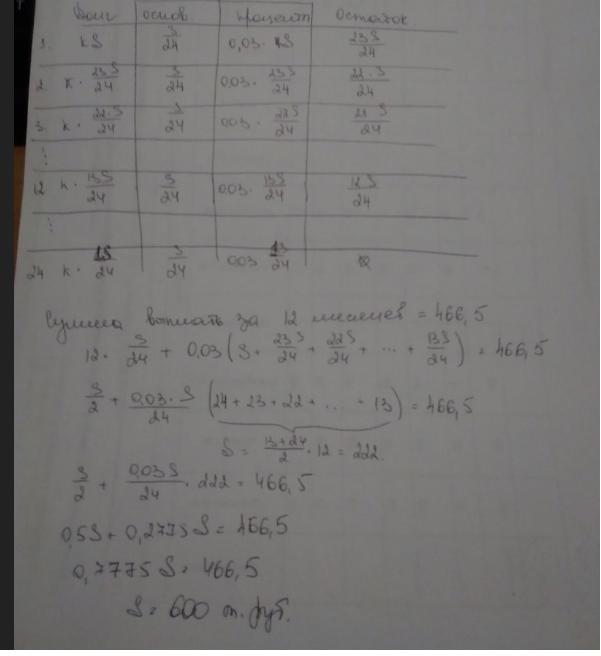 Долг основ процент Остаток
1. kS S/24 0,03·kS 23S/24
2. k·23S/24 S/24 0,03·23S/24 22·S/24
3. k·22·S/24 S/24 0,03·22S/24 21S/24
⋮
12 k·13S/24 S/24 0,03·13S/24 12S/24
⋮
24 k·1S/24 S/24 0,03 1S/24
Сумма выплат за 12 месяцев = 466,5
12·S/24 + 0,03(S + 23S/24 + 22S/24 + ... + 13S/24) = 466,5
S/2 + 0,03·S/24 (24 + 23 + 22 + ... + 13) = 466,5
S = 13+24/2 · 12 = 222.
S/2 + 0,03S/24 · 222 = 466,5
0,5S + 0,2775S = 466,5
0,7775S = 466,5
S = 600 т. руб.